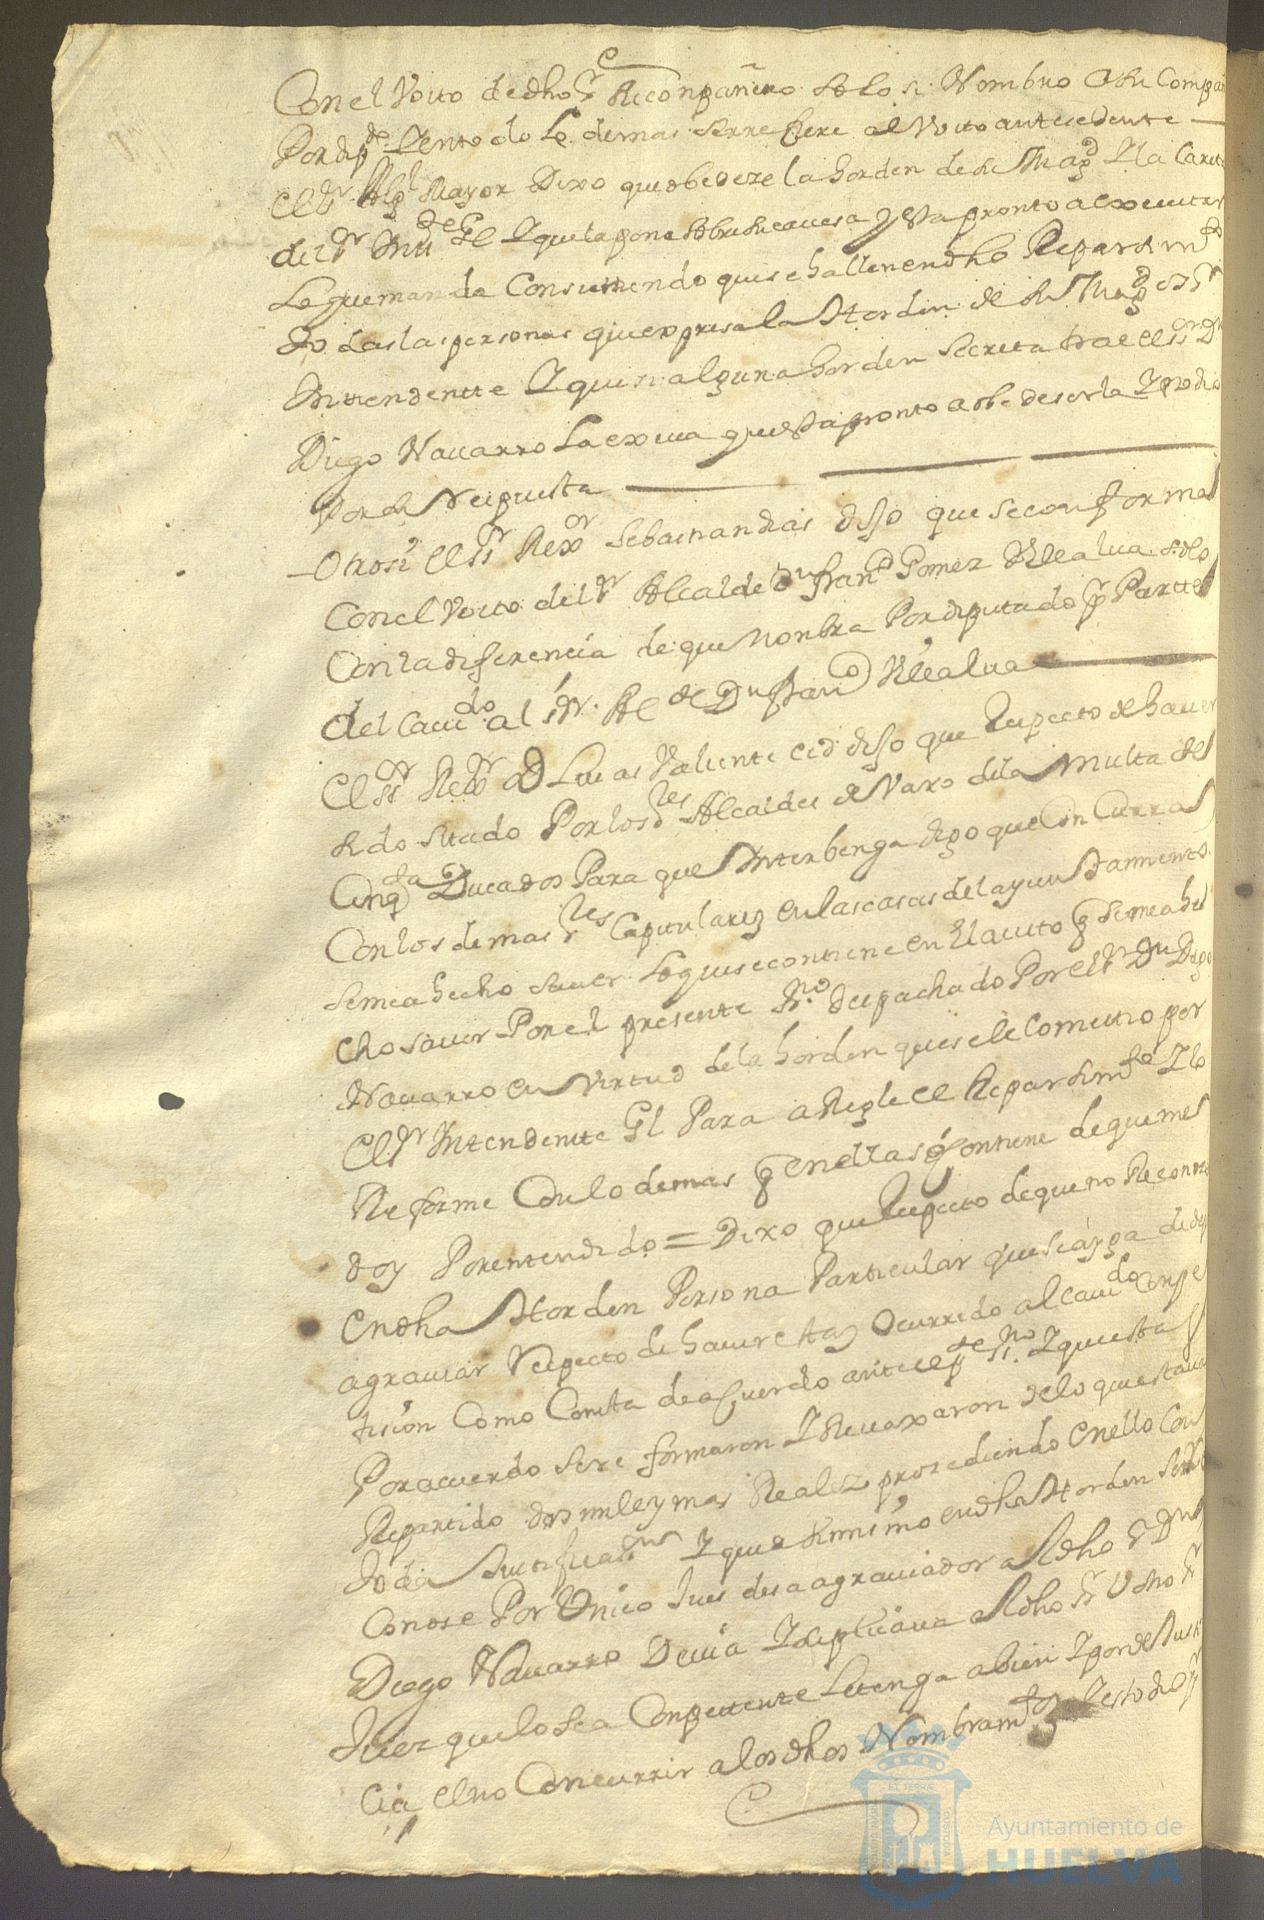 Con el Voto de dho Sr Su Conpañero solo si Nombro a Su Compa
Por dip.do Y en todo Lo demas se rrefiere al Voto antesedente
El Sr Alg.l Mayor Dixo que obedeze la horden de Su Mag.d Y la Carta
del Sr Intt.de Gl Y que la pone sobre su cauesa y esta pronto a executar
Lo que manda Consintiendo que se hallen en dho Repartim.to
todas las personas que expresa la Horden de Su Mag.d
Inttendentte Y que si alguna horden secreta trae el Sr Dn
Diego Nauarro La exiua que esta pronto a obedeserla Y
Por su Respuesta
Otrosi el Sr Rexor Sebastian dias dijo que se conforma
Con el Voto del Sr Alcalde Dn Fran.co Gomez solo
Con la diferencia de que nonbra Por diputado por Partte
del Cauildo al Sr. Alc.de Dn Fran.co
El Sr Rexor D Lucas Valiente Cid dijo que Respecto de hauer
sido sitado Por los Sres Alcaldes de Varo de la Multa de
Cinq.ta Ducados Para que Interbenga digo que Concurra
Con los demas Sres Capitularez en las casas del ayuntamiento
se me a hecho sauer Lo que se contiene en El auto q Se me a he
cho sauer Por el presente Sno despachado Por el Sr Dn Diego
Nauarro en Virtud de la horden que se le Cometio por
El Sr Intendentte Gl Para aRegle el Repartim.to Y lo
Reforme Con lo demas q en ellas Contiene de que me
doy Por entendido = Dixo que Respecto de que no Reconoze
en dha Horden Persona Particular que se aya de des
agrauiar Respecto de hauer estas Ocurrido al Cauildo Con pe
tision Como Consta de aCuerdo antte el pte Sno Y que esta
Por acuerdo se reformaron Y Reuaxaron de lo que estaua
Repartido dos mil y mas Reales prosediendo en ello Con
toda Justificacon Y que asimismo en dha Horden se Re
Conose Por Unico Jues desaagrauiador a dho Sr Dn
Diego Nauarro Devia Y Suplicaua a dho Sr U otro
Juez que lo sea Conpetente Lo tenga a bien Y por de Justi
cia el no Concurrir a los dhos Nombram.tos Y esto dio
Ayuntamiento de
HUELVA